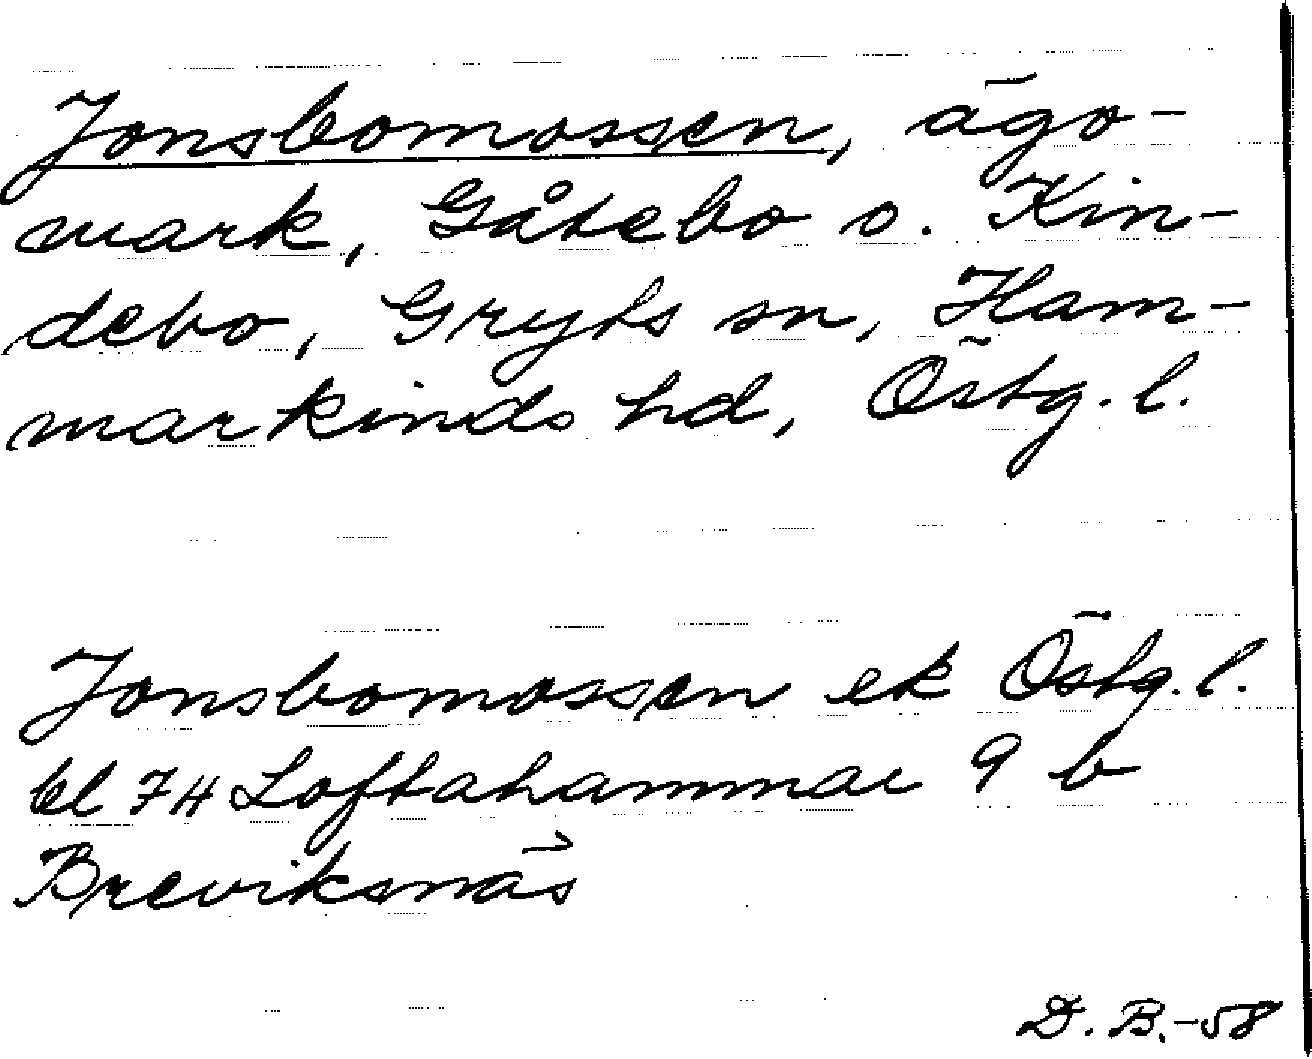 Jonsbomossen, ägo-
mark, Gåtebo o. Kin-
debo, Gryts sn, Ham-
markinds hd, Östg. l.
Jonsbomossen ek Östg. l.
bl 7H Loftahammar 9 b
Breviksnäs
D. B. -58